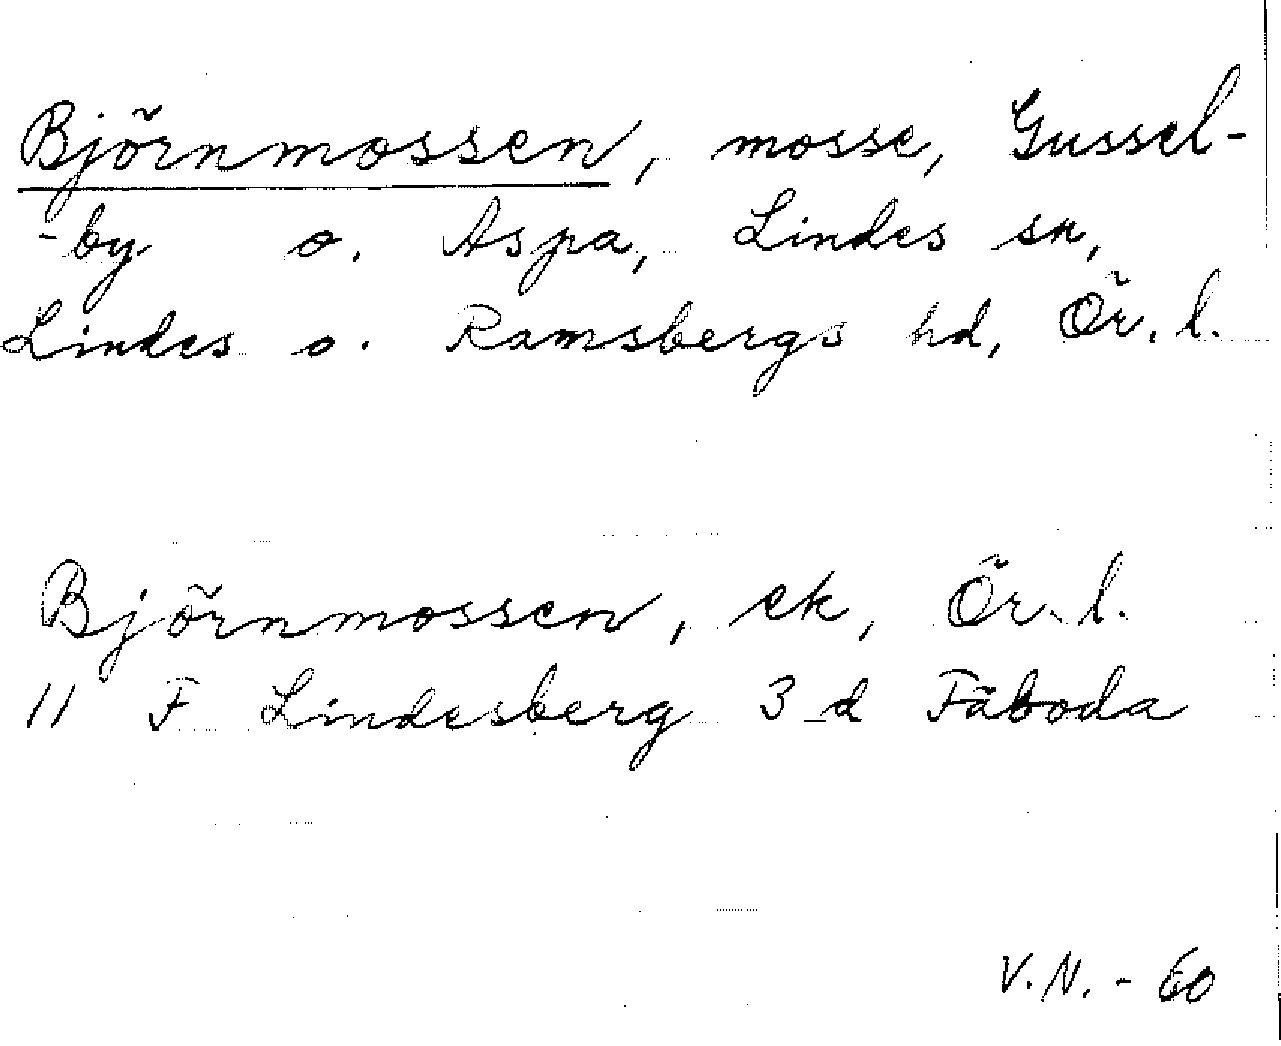 Björnmossen, mosse, Gussel-
-by o. Aspa, Lindes sn,
Lindes o. Ramsbergs hd, Ör. l.
Björnmossen, ek, Ör. l.
11 F Lindesberg 3 d Fäboda
V.N. - 60